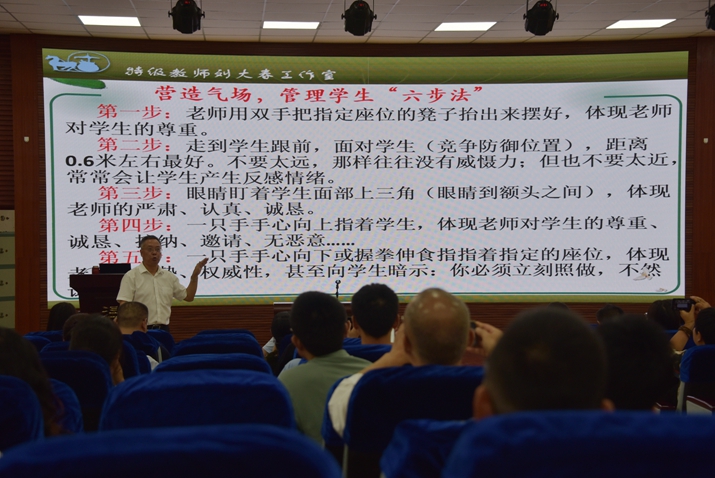 特级教师刘大春工作室
营造气场，管理学生“六步法”
第一步：老师用双手把指定座位的凳子抬出来摆好，体现老师
对学生的尊重。
第二步：走到学生跟前，面对学生（竞争防御位置），距离
0.6米左右最好。不要太远，那样往往没有威慑力；但也不要太近，
常常会让学生产生反感情绪。
第三步：眼睛盯着学生面部上三角（眼睛到额头之间），体现
老师的严肃、认真、诚恳。
第四步：一只手手心向上指着学生，体现老师对学生的尊重、
诚恳、接纳、邀请、无恶意……
第五 一只手手心向下或握拳伸食指指着指定的座位，体现
老 权威性，甚至向学生暗示：你必须立刻照做，不然